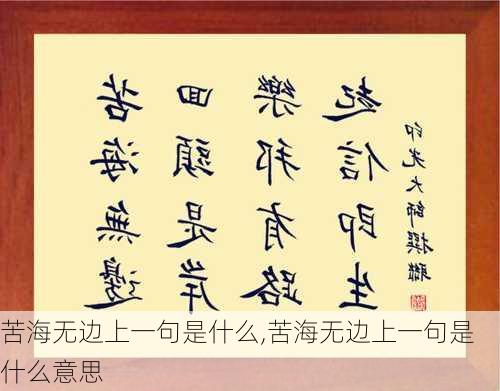 苦海無邊
回頭是岸
樂邦有路
起信即生
印光大師撰聯
苦海无边上一句是什么,苦海无边上一句是
什么意思